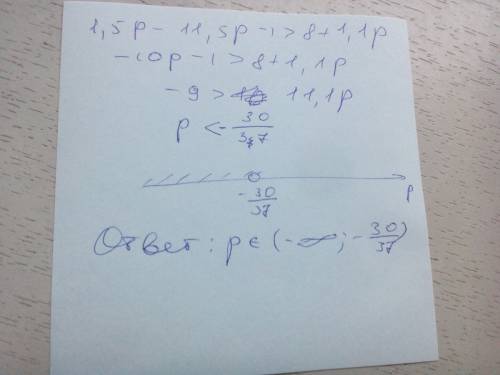 1,5p - 11,5p - 1 > 8 + 1,1p
-10p - 1 > 8 + 1,1p
-9 > 11,1p
p < -30/37
-30/37
p
Ответ: p ∈ (-∞; -30/37)